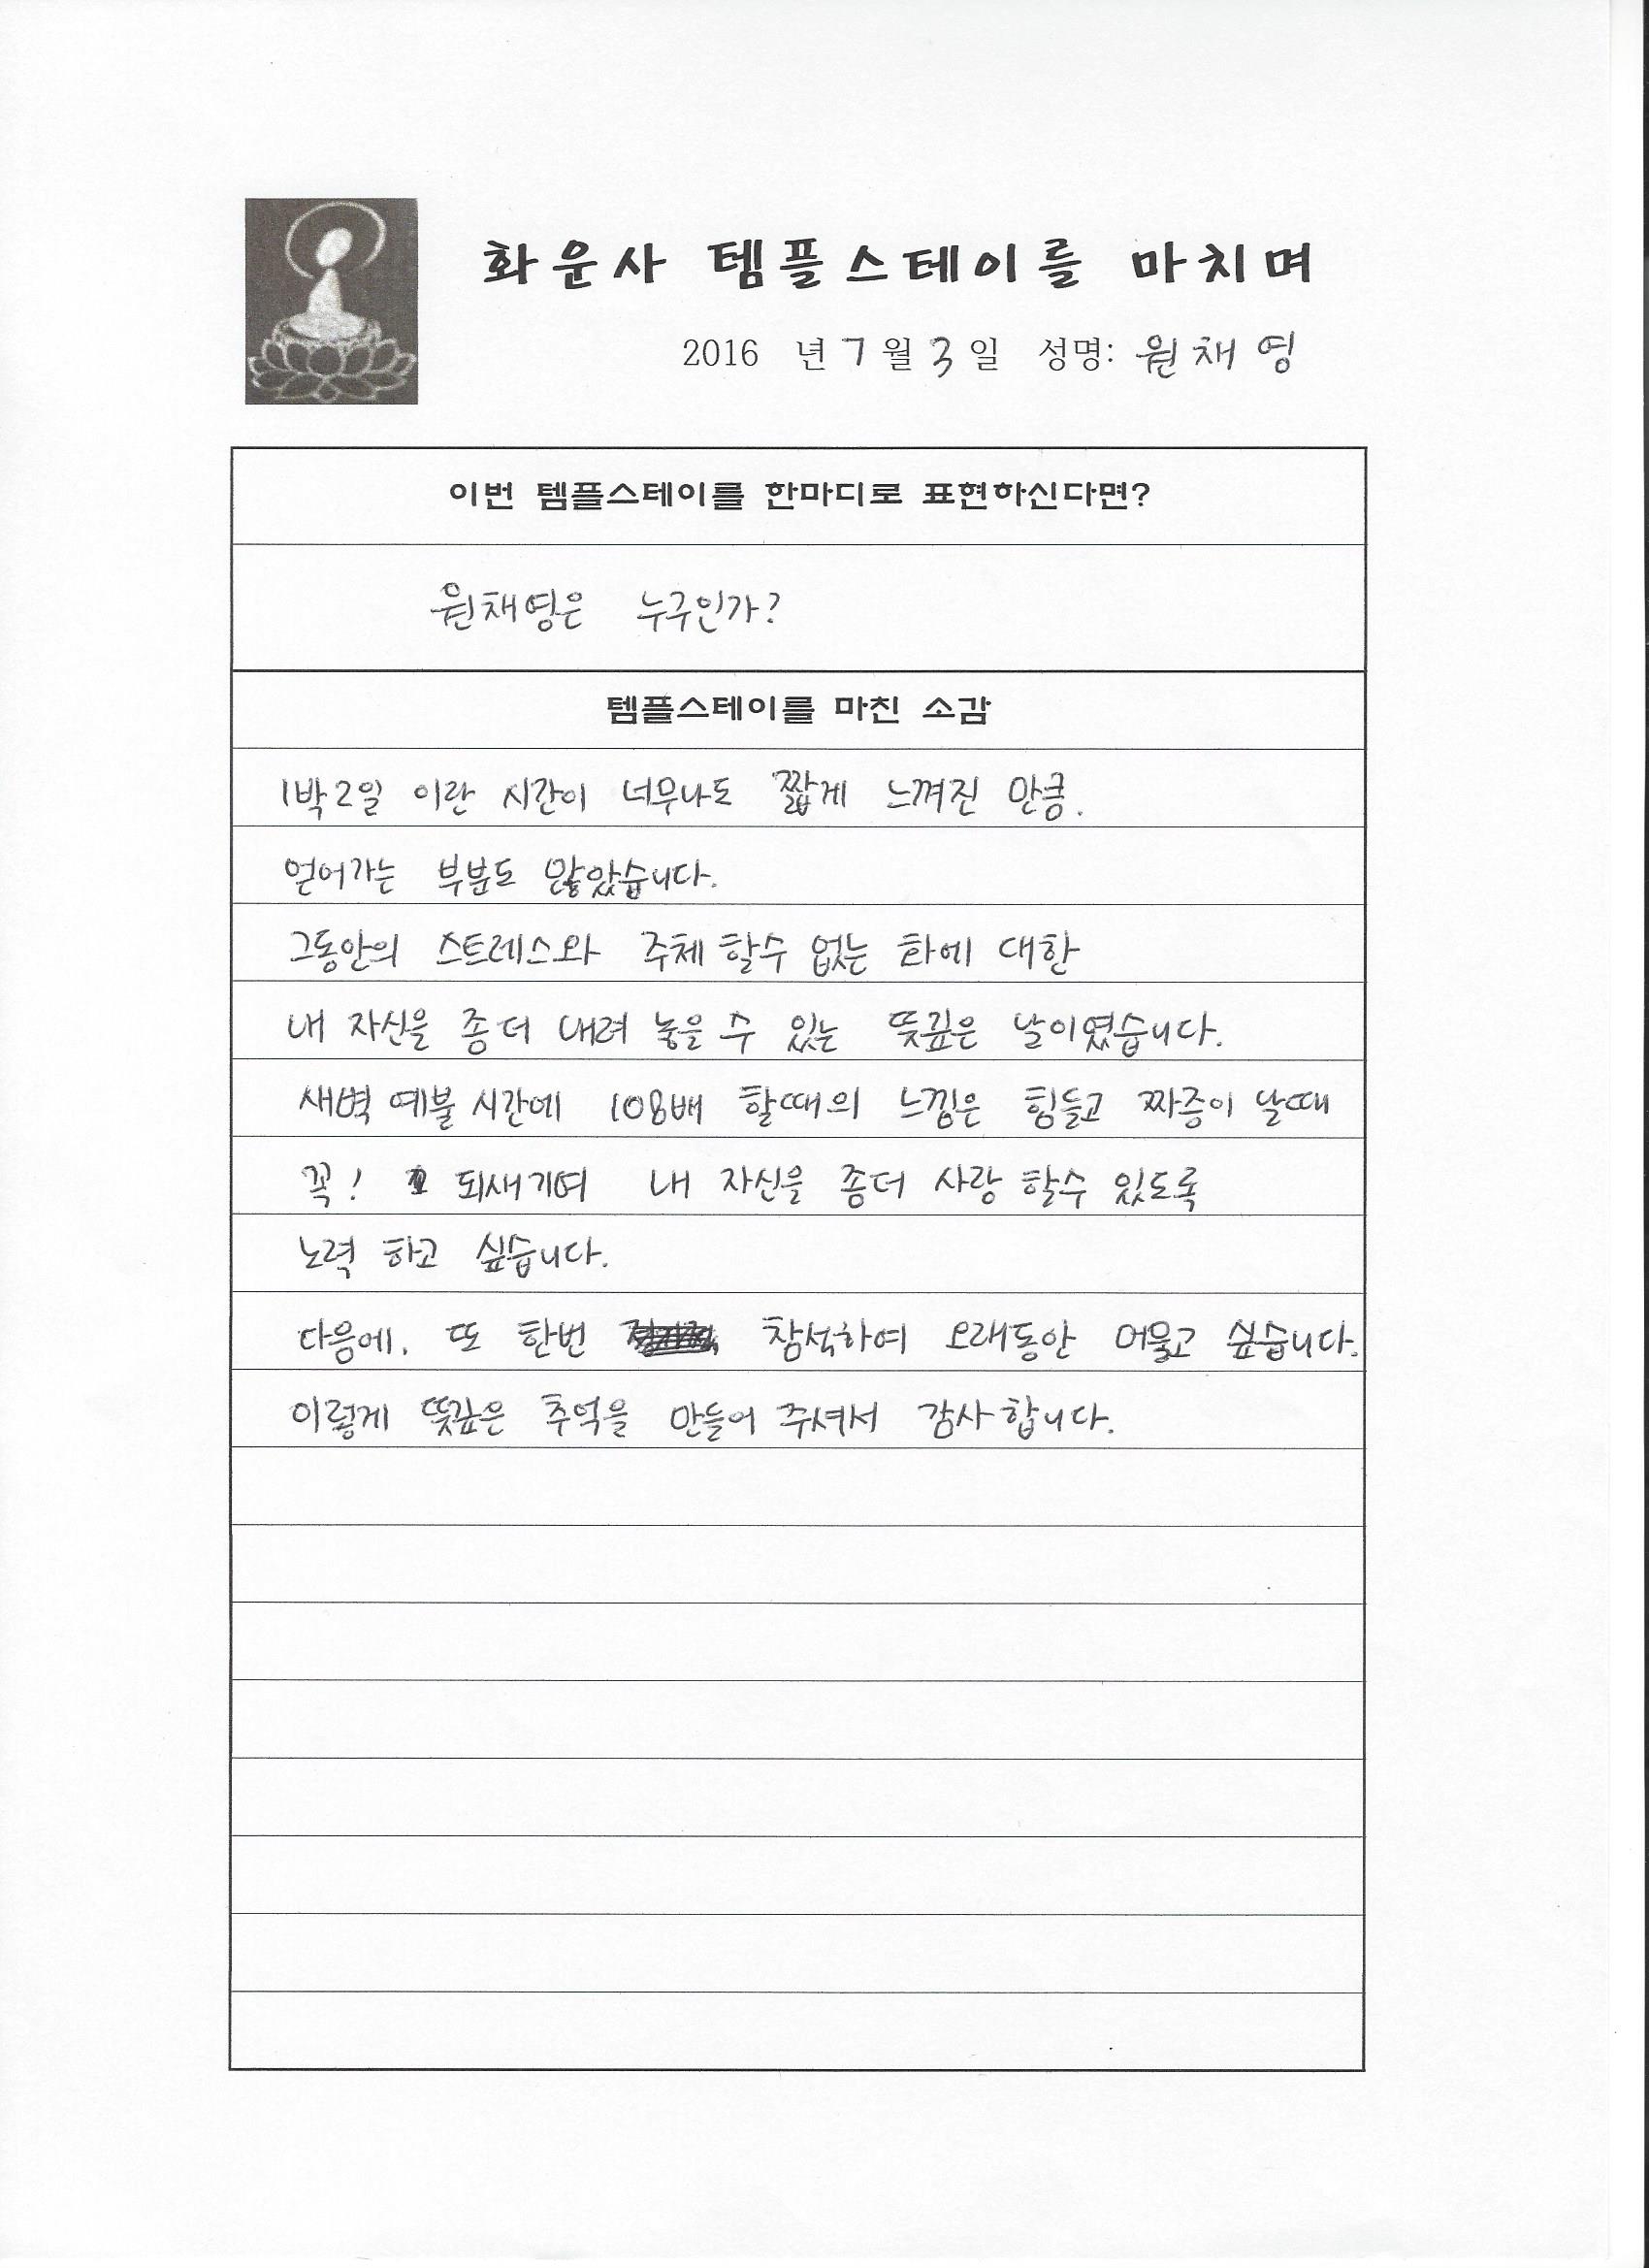 화운사 템플스테이를 마치며
2016 년 7 월 3 일 성명: 원채영
이번 템플스테이를 한마디로 표현하신다면?
원채영은 누구인가?
템플스테이를 마친 소감
1박2일 이란 시간이 너무나도 짧게 느껴진 만큼.
얻어가는 부분도 많았습니다.
그동안의 스트레스와 주체 할수 없는 화에 대한
내 자신을 좀더 내려 놓을 수 있는 뜻깊은 날이였습니다.
새벽 예불 시간에 108배 할때의 느낌은 힘들고 짜증이 날때
꼭! 되새기며 내 자신을 좀더 사랑 할수 있도록
노력 하고 싶습니다.
다음에. 또 한번 참석하여 오래동안 머물고 싶습니다.
이렇게 뜻깊은 추억을 만들어 주셔서 감사합니다.